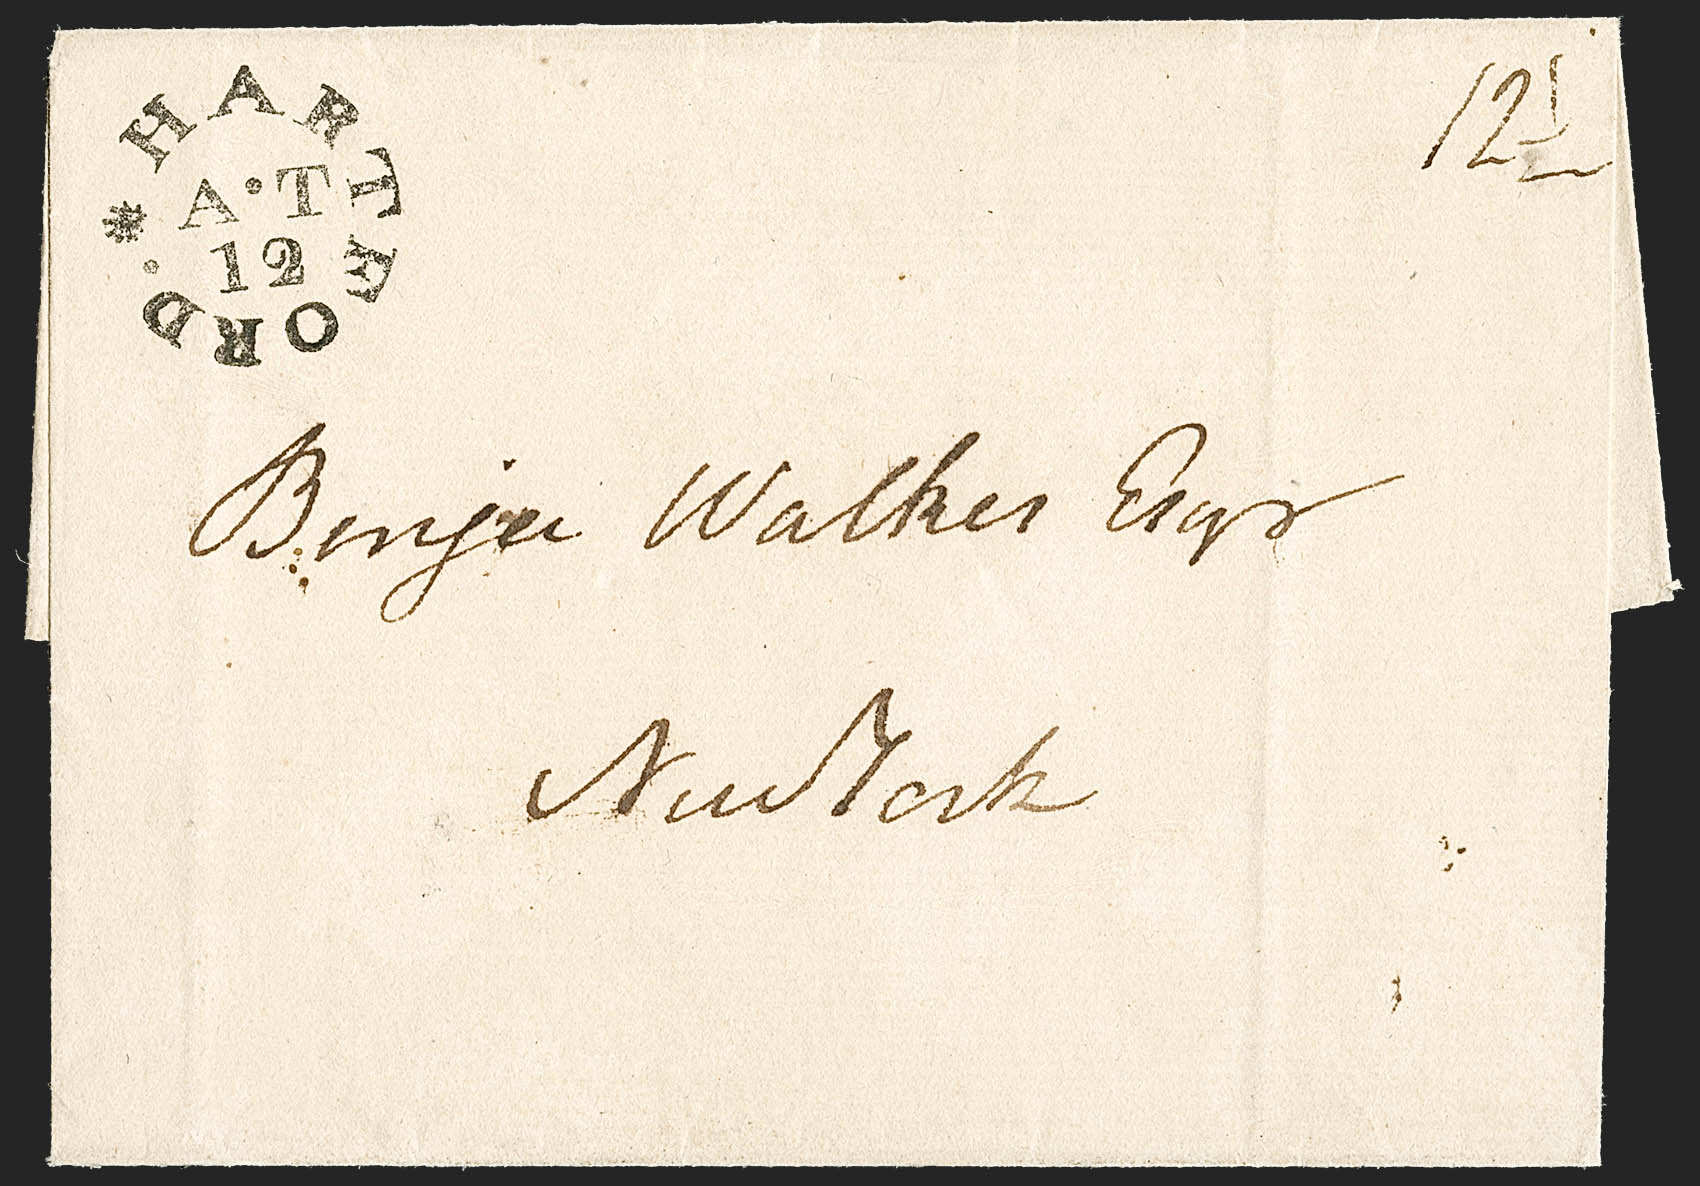 * HARTFORD ·
A·T
12
12½
Benja Walker Esqr
New York